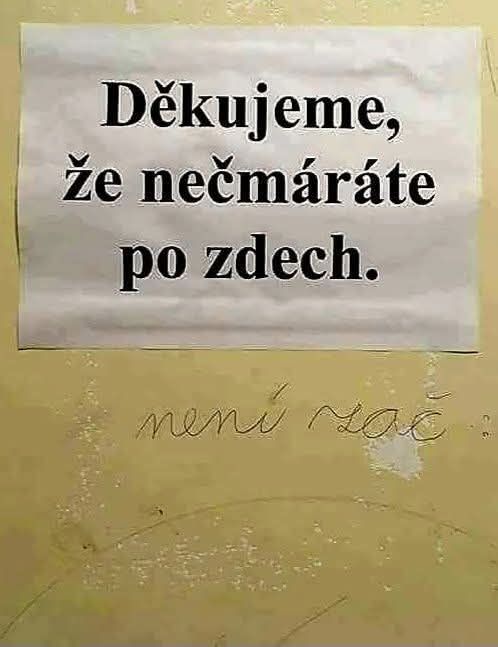 Děkujeme,
že nečmáráte
po zdech.
není zač